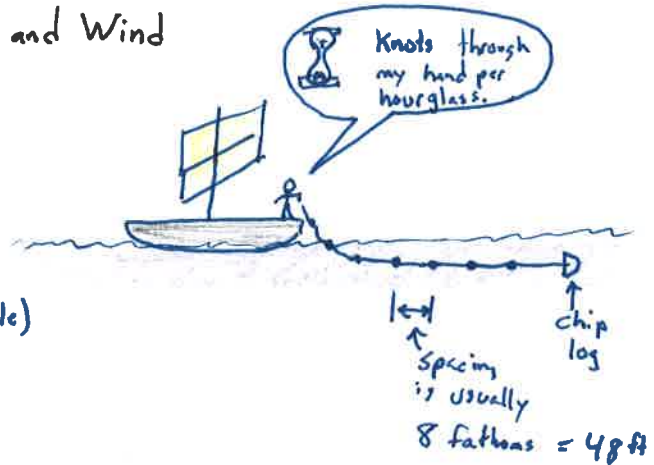 and Wind
Knots through
my hand per
hourglass.
le)
chip
log
spacing
is usually
8 fathoms = 48 ft